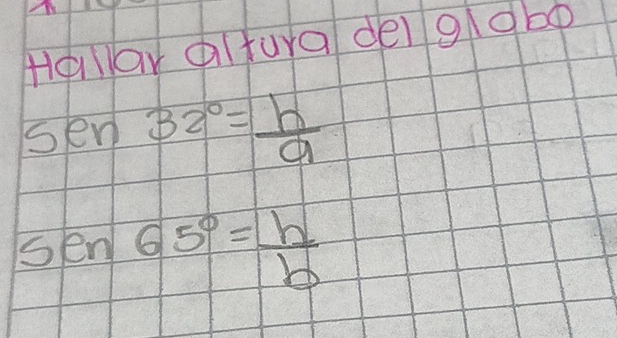 Hallar altura del globo
Sen 32° = h/a
Sen 65° = h/b